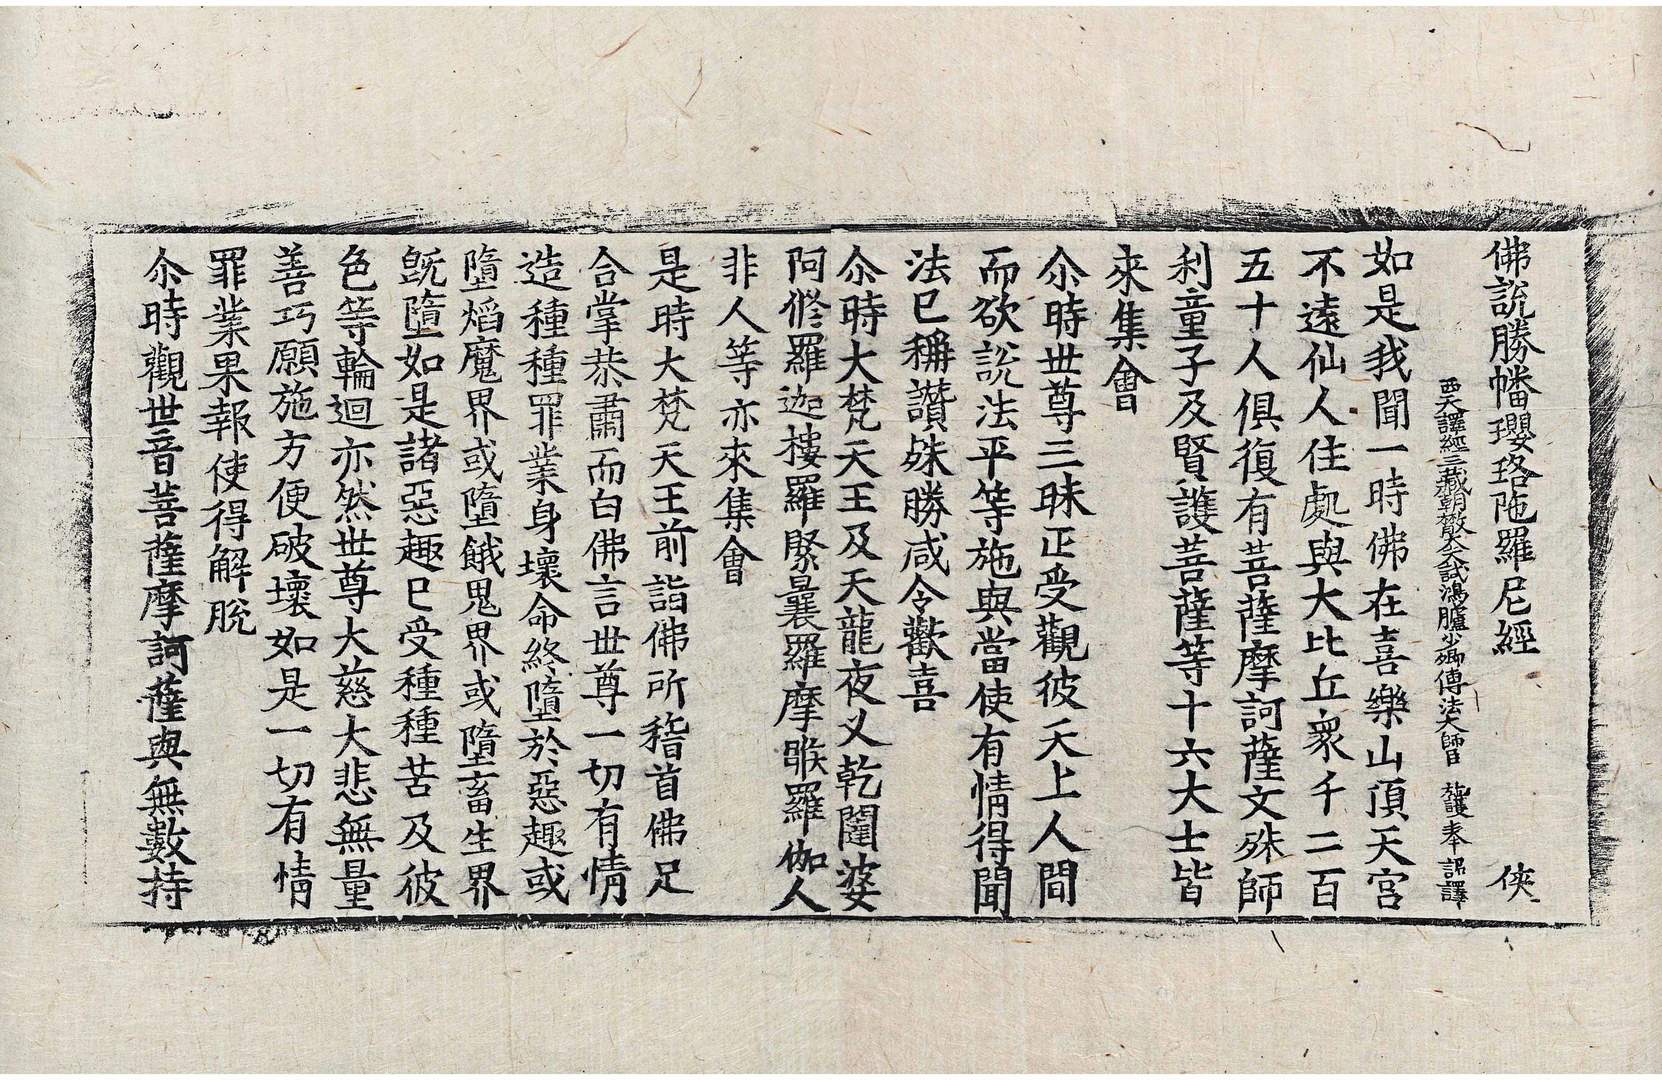 佛說勝幡瓔珞陁羅尼經 俠
西天譯經三藏朝散大夫試鴻臚少卿傳法大師臣 施護奉 詔譯
如是我聞一時佛在喜樂山頂天宮
不遠仙人住處與大比丘衆千二百
五十人俱復有菩薩摩訶薩文殊師
利童子及賢護菩薩等十六大士皆
來集會
尒時世尊三昧正受觀彼天上人間
而欲說法平等施與當使有情得聞
法已稱讚殊勝咸令歡喜
尒時大梵天王及天龍夜叉乾闥婆
阿修羅迦樓羅緊曩羅摩睺羅伽人
非人等亦來集會
是時大梵天王前詣佛所稽首佛足
合掌恭肅而白佛言世尊一切有情
造種種罪業身壞命終墮於惡趣或
墮焰魔界或墮餓鬼界或墮畜生界
既墮如是諸惡趣已受種種苦及彼
色等輪迴亦然世尊大慈大悲無量
善巧願施方便破壞如是一切有情
罪業果報使得解脫
尒時觀世音菩薩摩訶薩與無數持